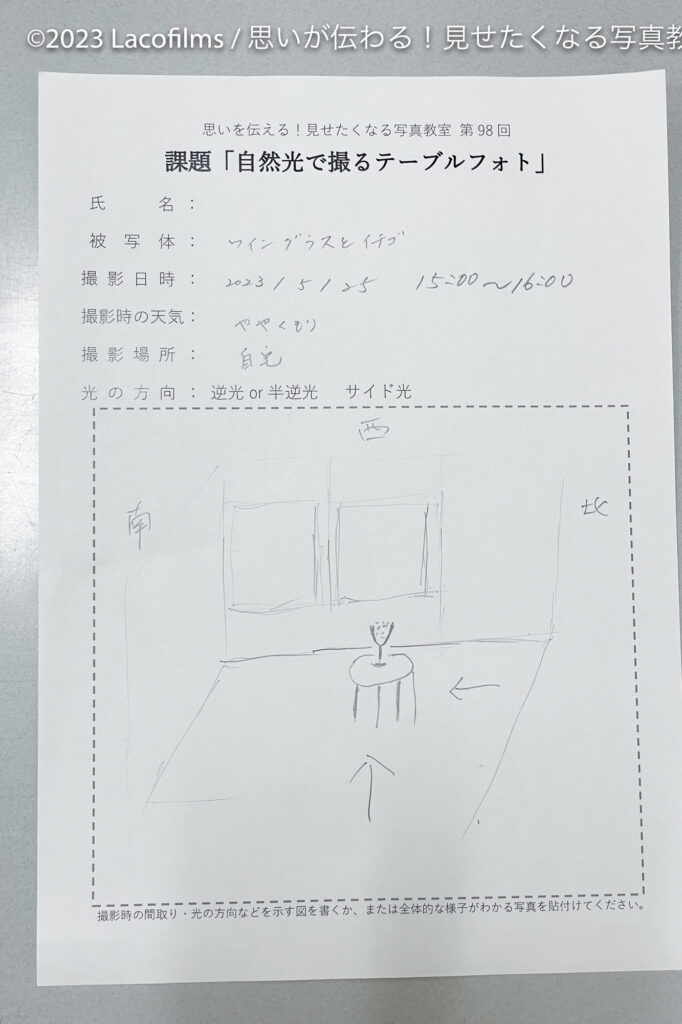 ©2023 Lacofilms / 思いが伝わる！見せたくなる写真教
思いを伝える！見せたくなる写真教室 第98回
課題「自然光で撮るテーブルフォト」
氏名：
被写体： ワイングラスとイチゴ
撮影日時： 2023/5/25 15:00～16:00
撮影時の天気： ややくもり
撮影場所： 自宅
光の方向：逆光 or 半逆光 サイド光
西
南
北
撮影時の間取り・光の方向などを示す図を書くか、または全体的な様子がわかる写真を貼付けてください。